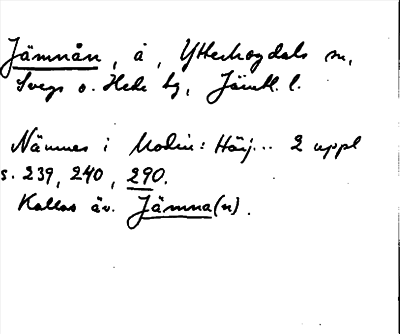 Jämnån, å, Ytterhogdals sn,
Svegs o. Hede tg, Jämtl. l.
Nämnes i Modin: Härj... 2 uppl
s. 239, 240, 290.
Kallas äv. Jämna(n).